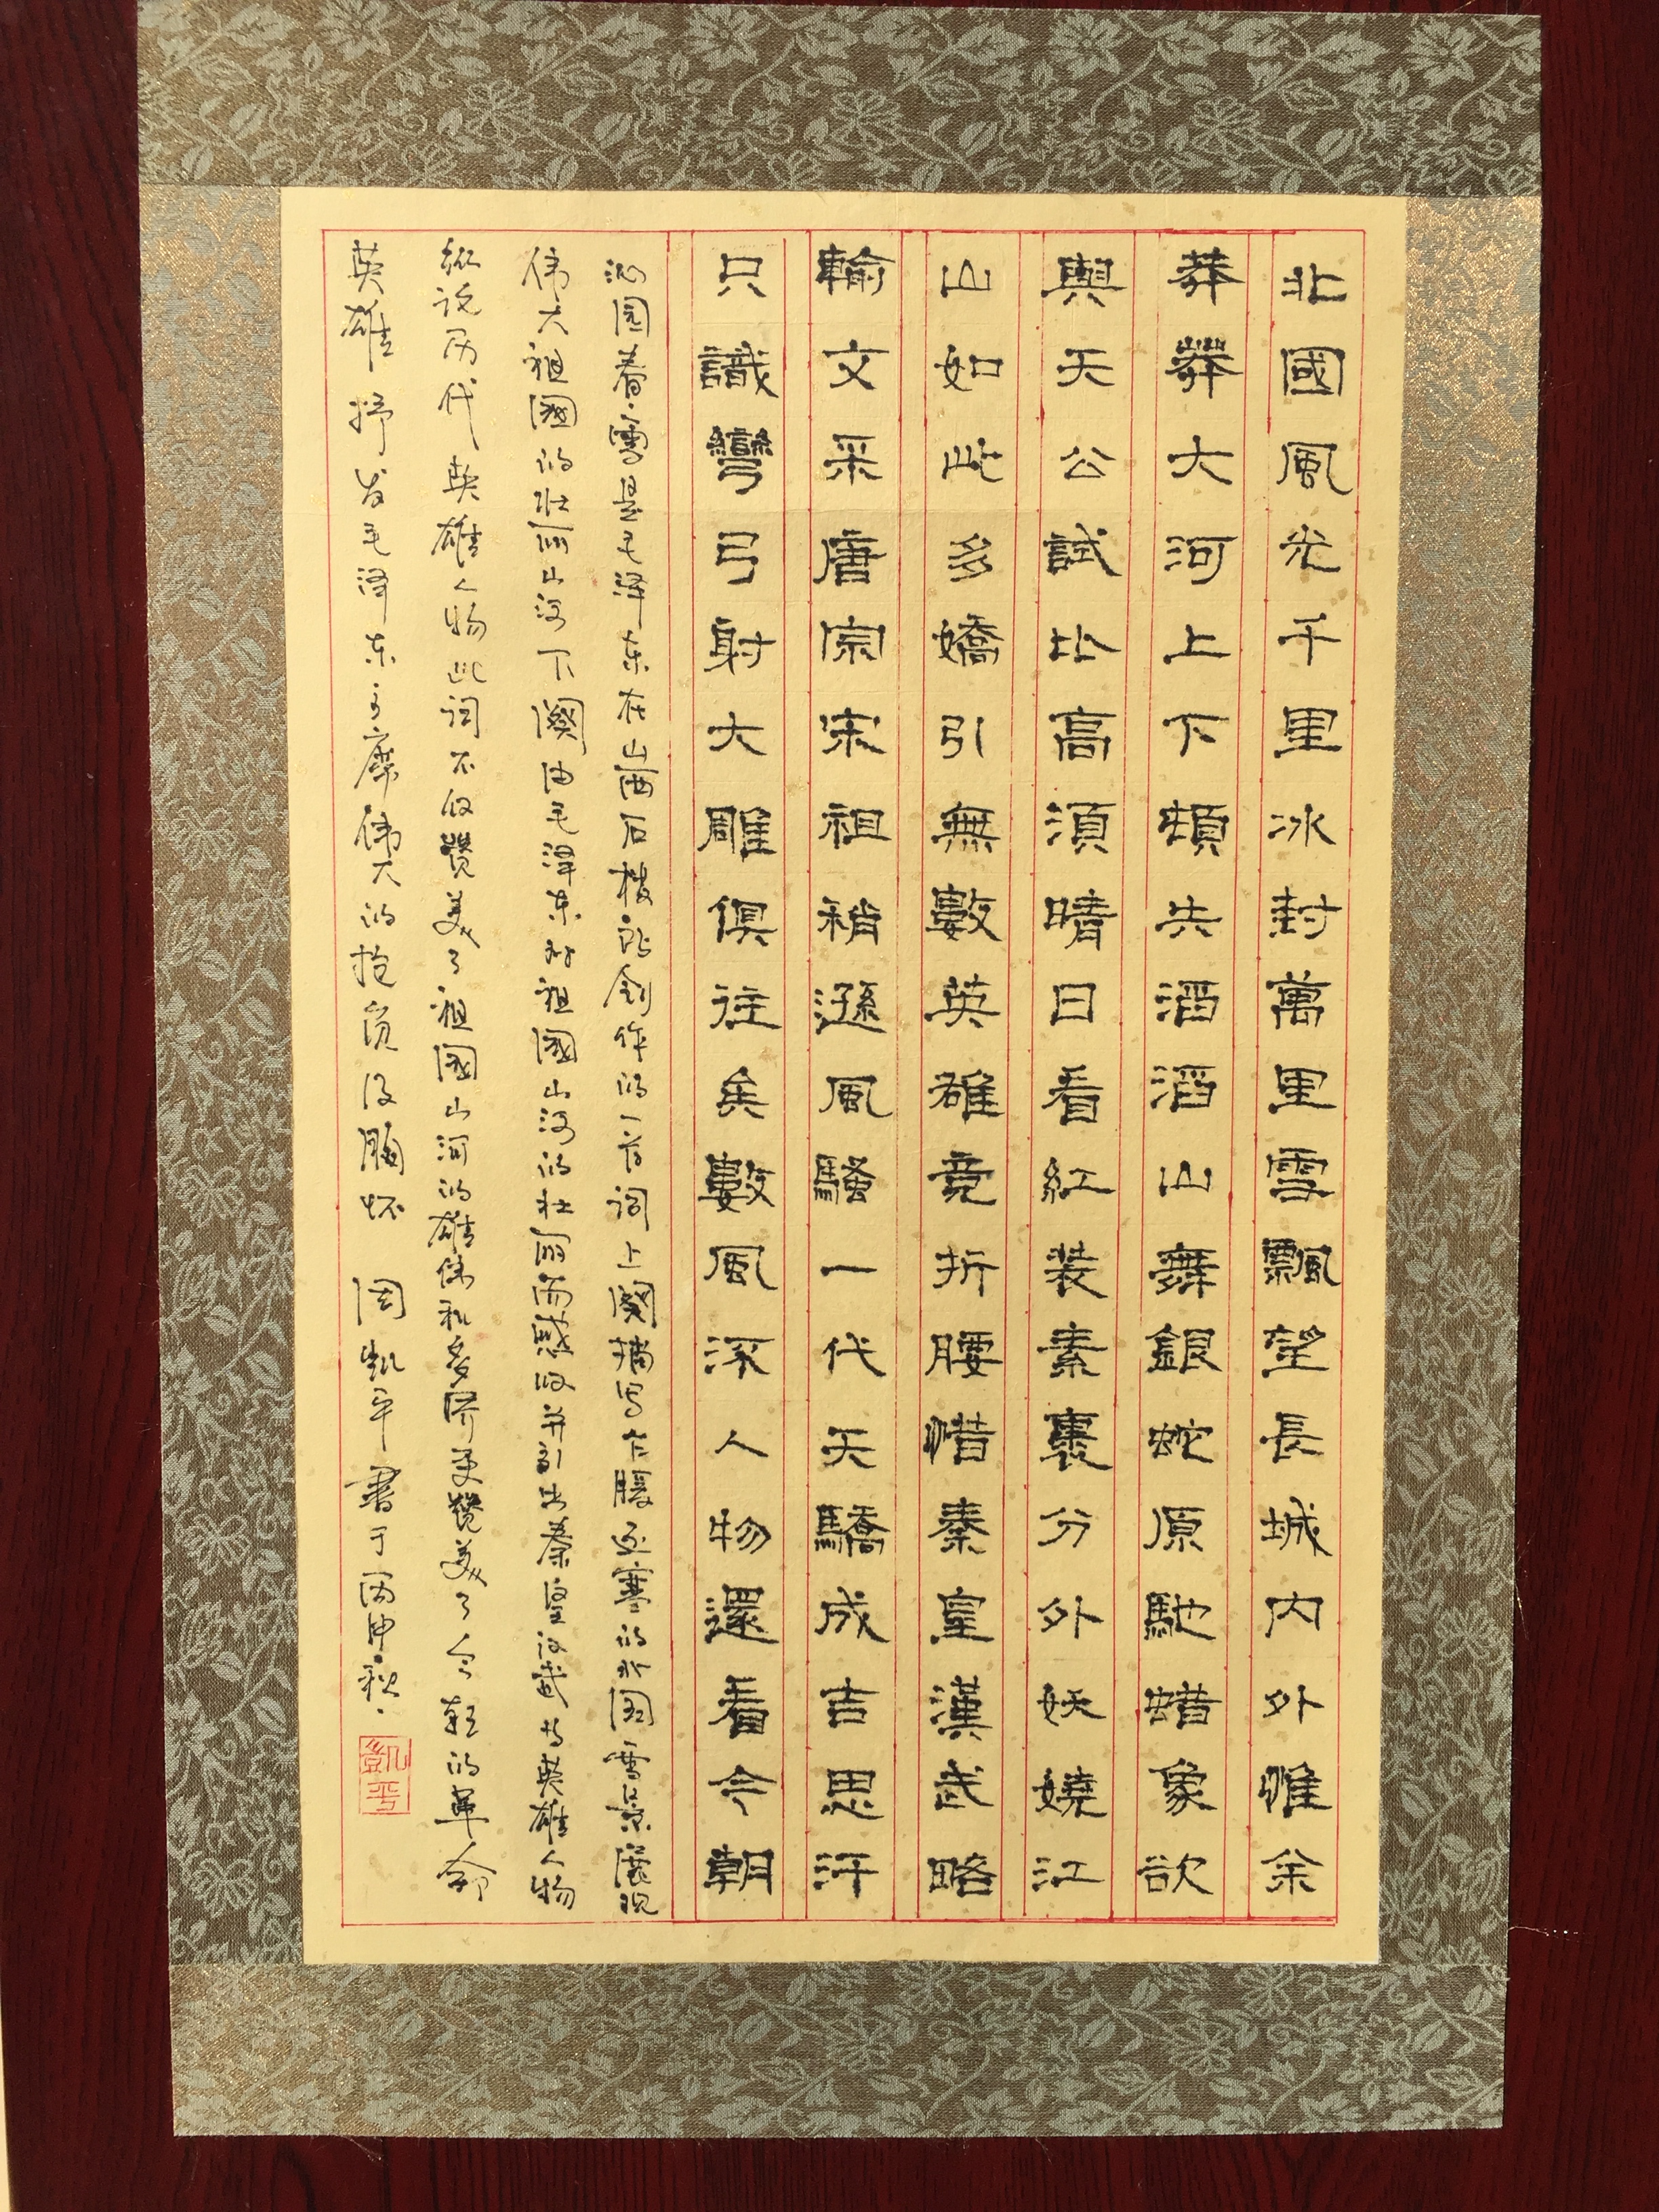 北國風光千里冰封萬里雪飄望長城内外惟余
莽莽大河上下頓失滔滔山舞銀蛇原馳蠟象欲
與天公試比高須晴日看紅装素裹分外妖嬈江
山如此多嬌引無數英雄竞折腰惜秦皇漢武略
輸文采唐宗宋祖稍遜風騷一代天驕成吉思汗
只識彎弓射大雕俱往矣數風流人物還看今朝
沁园春·雪是毛泽东在山西石楼縣创作的一首词上闋描写乍暖还寒的北国雪景展现
伟大祖國的壮丽山河下闋由毛泽东对祖國山河的壮丽而感叹并引出秦皇汉武等英雄人物
纵论历代英雄人物此词不仅赞美了祖國山河的雄伟和多娇更赞美了今朝的革命
英雄抒发毛泽东主席伟大的抱负及胸怀 周凯平書于丙申·秋·
凯平